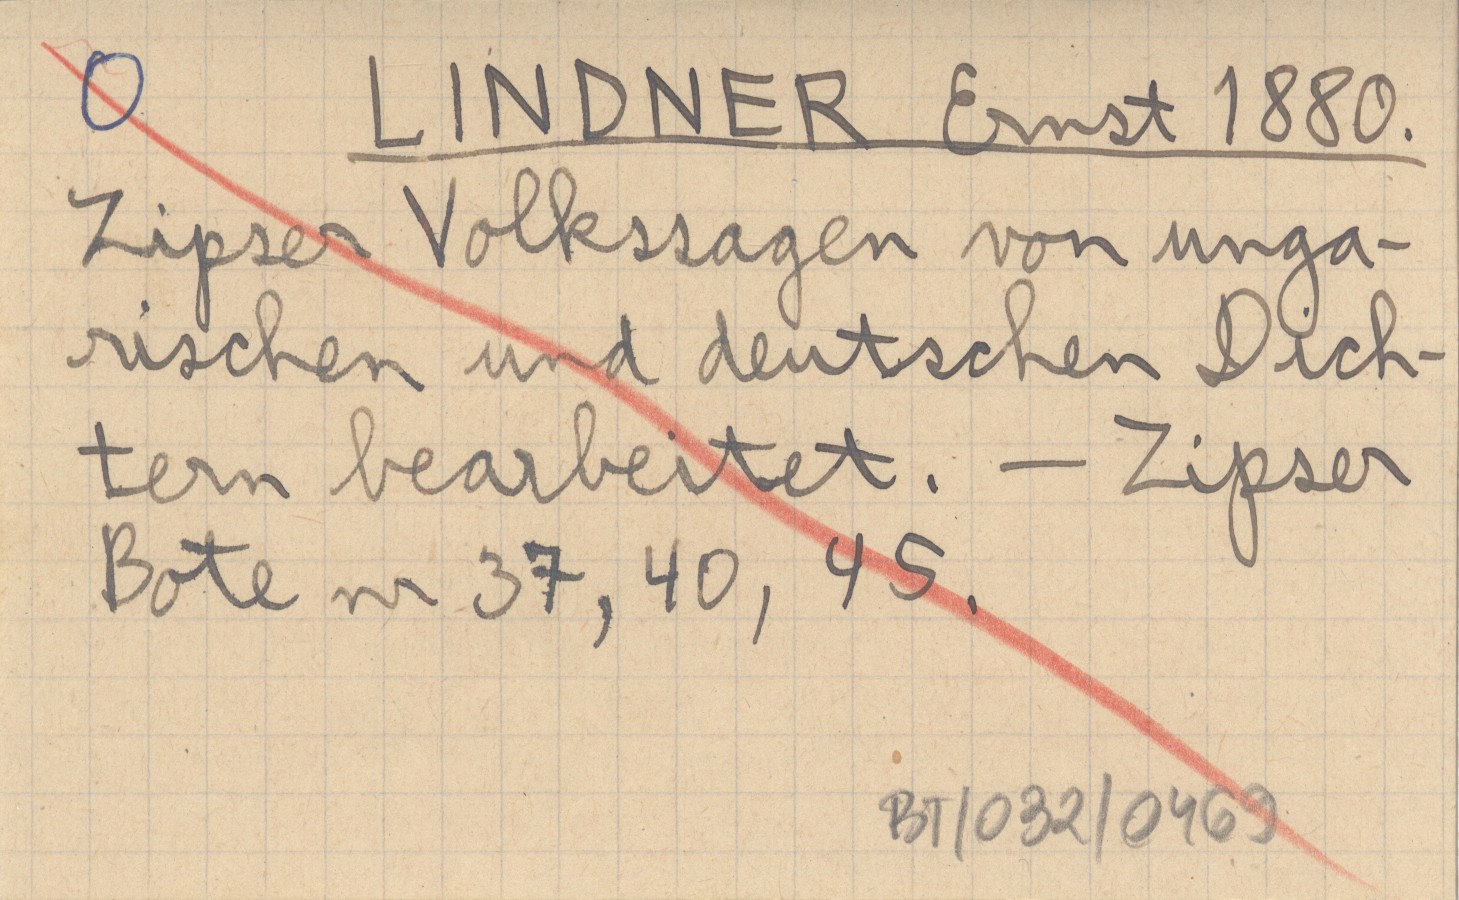 O LINDNER Ernst 1880.
Zipser Volkssagen von unga-
rischen und deutschen Dich-
tern bearbeitet. — Zipser
Bote nr 37, 40, 45.
BT/032/0469